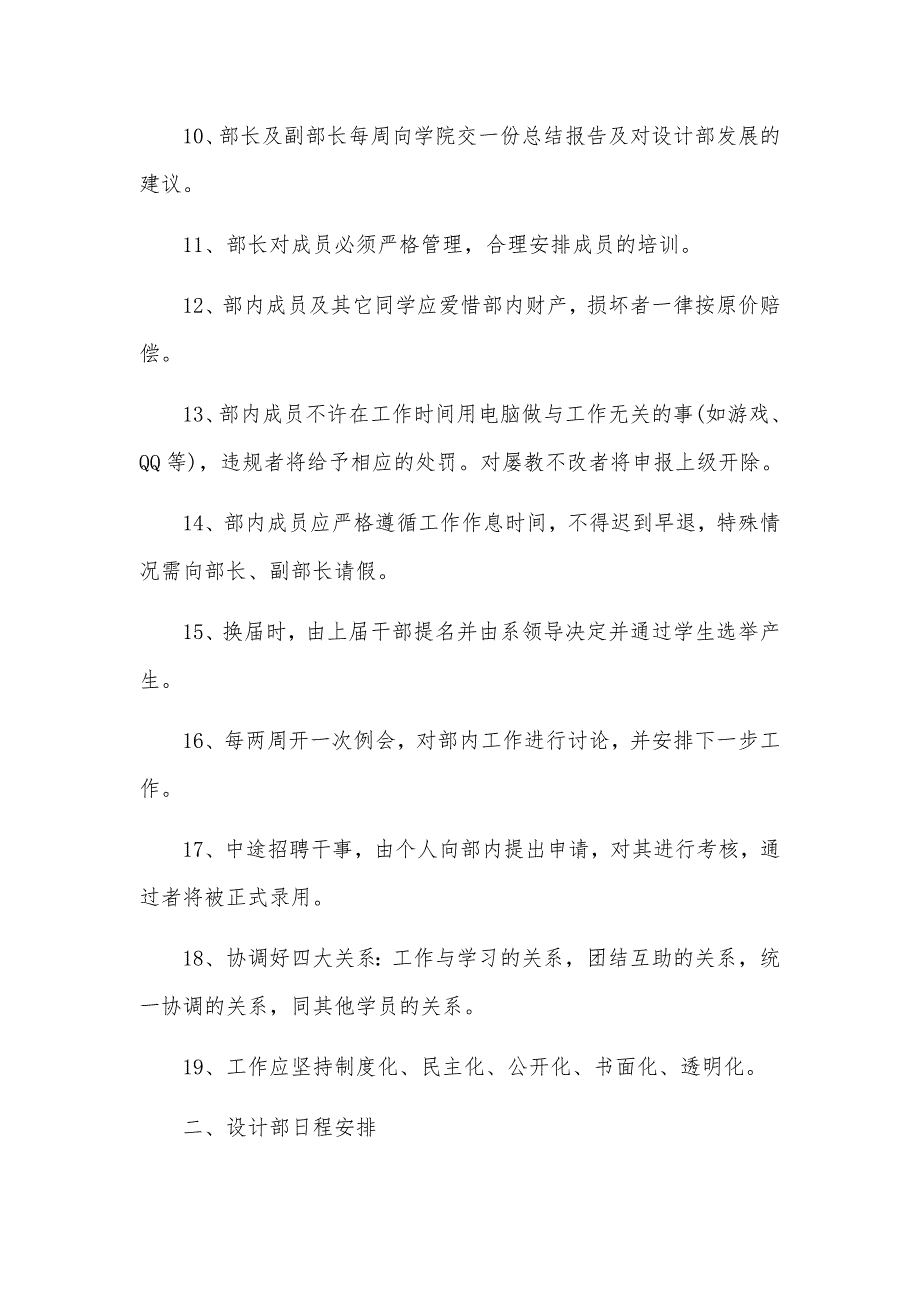 10、部长及副部长每周向学院交一份总结报告及对设计部发展的
建议。
11、部长对成员必须严格管理，合理安排成员的培训。
12、部内成员及其它同学应爱惜部内财产，损坏者一律按原价赔
偿。
13、部内成员不许在工作时间用电脑做与工作无关的事(如游戏、
QQ等)，违规者将给予相应的处罚。对屡教不改者将申报上级开除。
14、部内成员应严格遵循工作作息时间，不得迟到早退，特殊情
况需向部长、副部长请假。
15、换届时，由上届干部提名并由系领导决定并通过学生选举产
生。
16、每两周开一次例会，对部内工作进行讨论，并安排下一步工
作。
17、中途招聘干事，由个人向部内提出申请，对其进行考核，通
过者将被正式录用。
18、协调好四大关系：工作与学习的关系，团结互助的关系，统
一协调的关系，同其他学员的关系。
19、工作应坚持制度化、民主化、公开化、书面化、透明化。
二、设计部日程安排